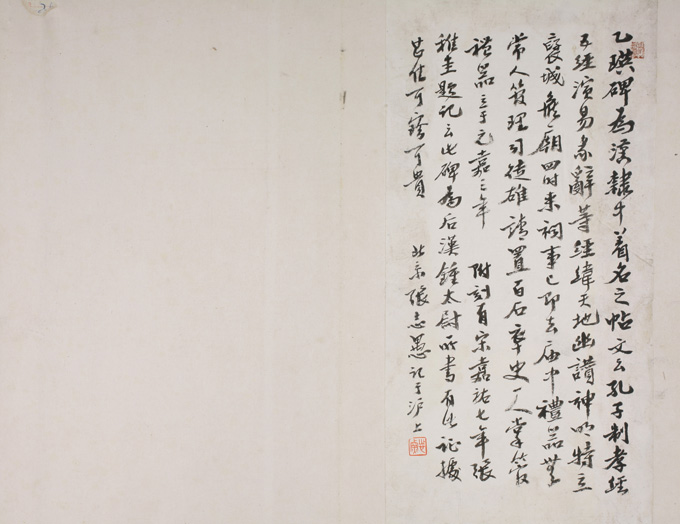 乙瑛碑為漢隸中着名之帖文云孔子制孝經
五經演易象辭等經緯天地幽讚神明特立
襃城侯廟四時来祠事已即去庙中禮器無
常人管理司徒雄請置百石卒史一人掌管
禮器立于元嘉三年 附刻有宋嘉祐七年張
稚圭題記云此碑為后漢鍾太尉所書有此證據
可 可貴
北京張志愚記于沪上